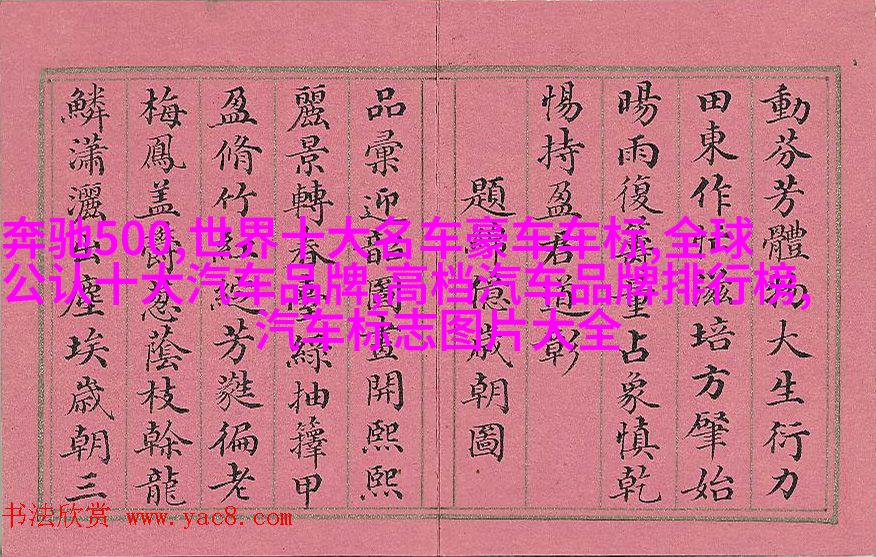 動芬芳體大生衍力
田東作滋培方肇始
暘雨復占象慎乾
惕持盈君道彰
題億歲朝圖
品彙迎圖畫開熙熙
麗景轉春綠抽籜甲
盈脩竹紅綻芳蕤徧老
梅鳳蓋蔭枝榦龍
鱗瀟灑出塵埃歲朝三
奔驰500,世界十大名车豪车车标,全球
公认十大汽车品牌,高档汽车品牌排行榜,
汽车标志图片大全
书法欣赏 www.yac8.com